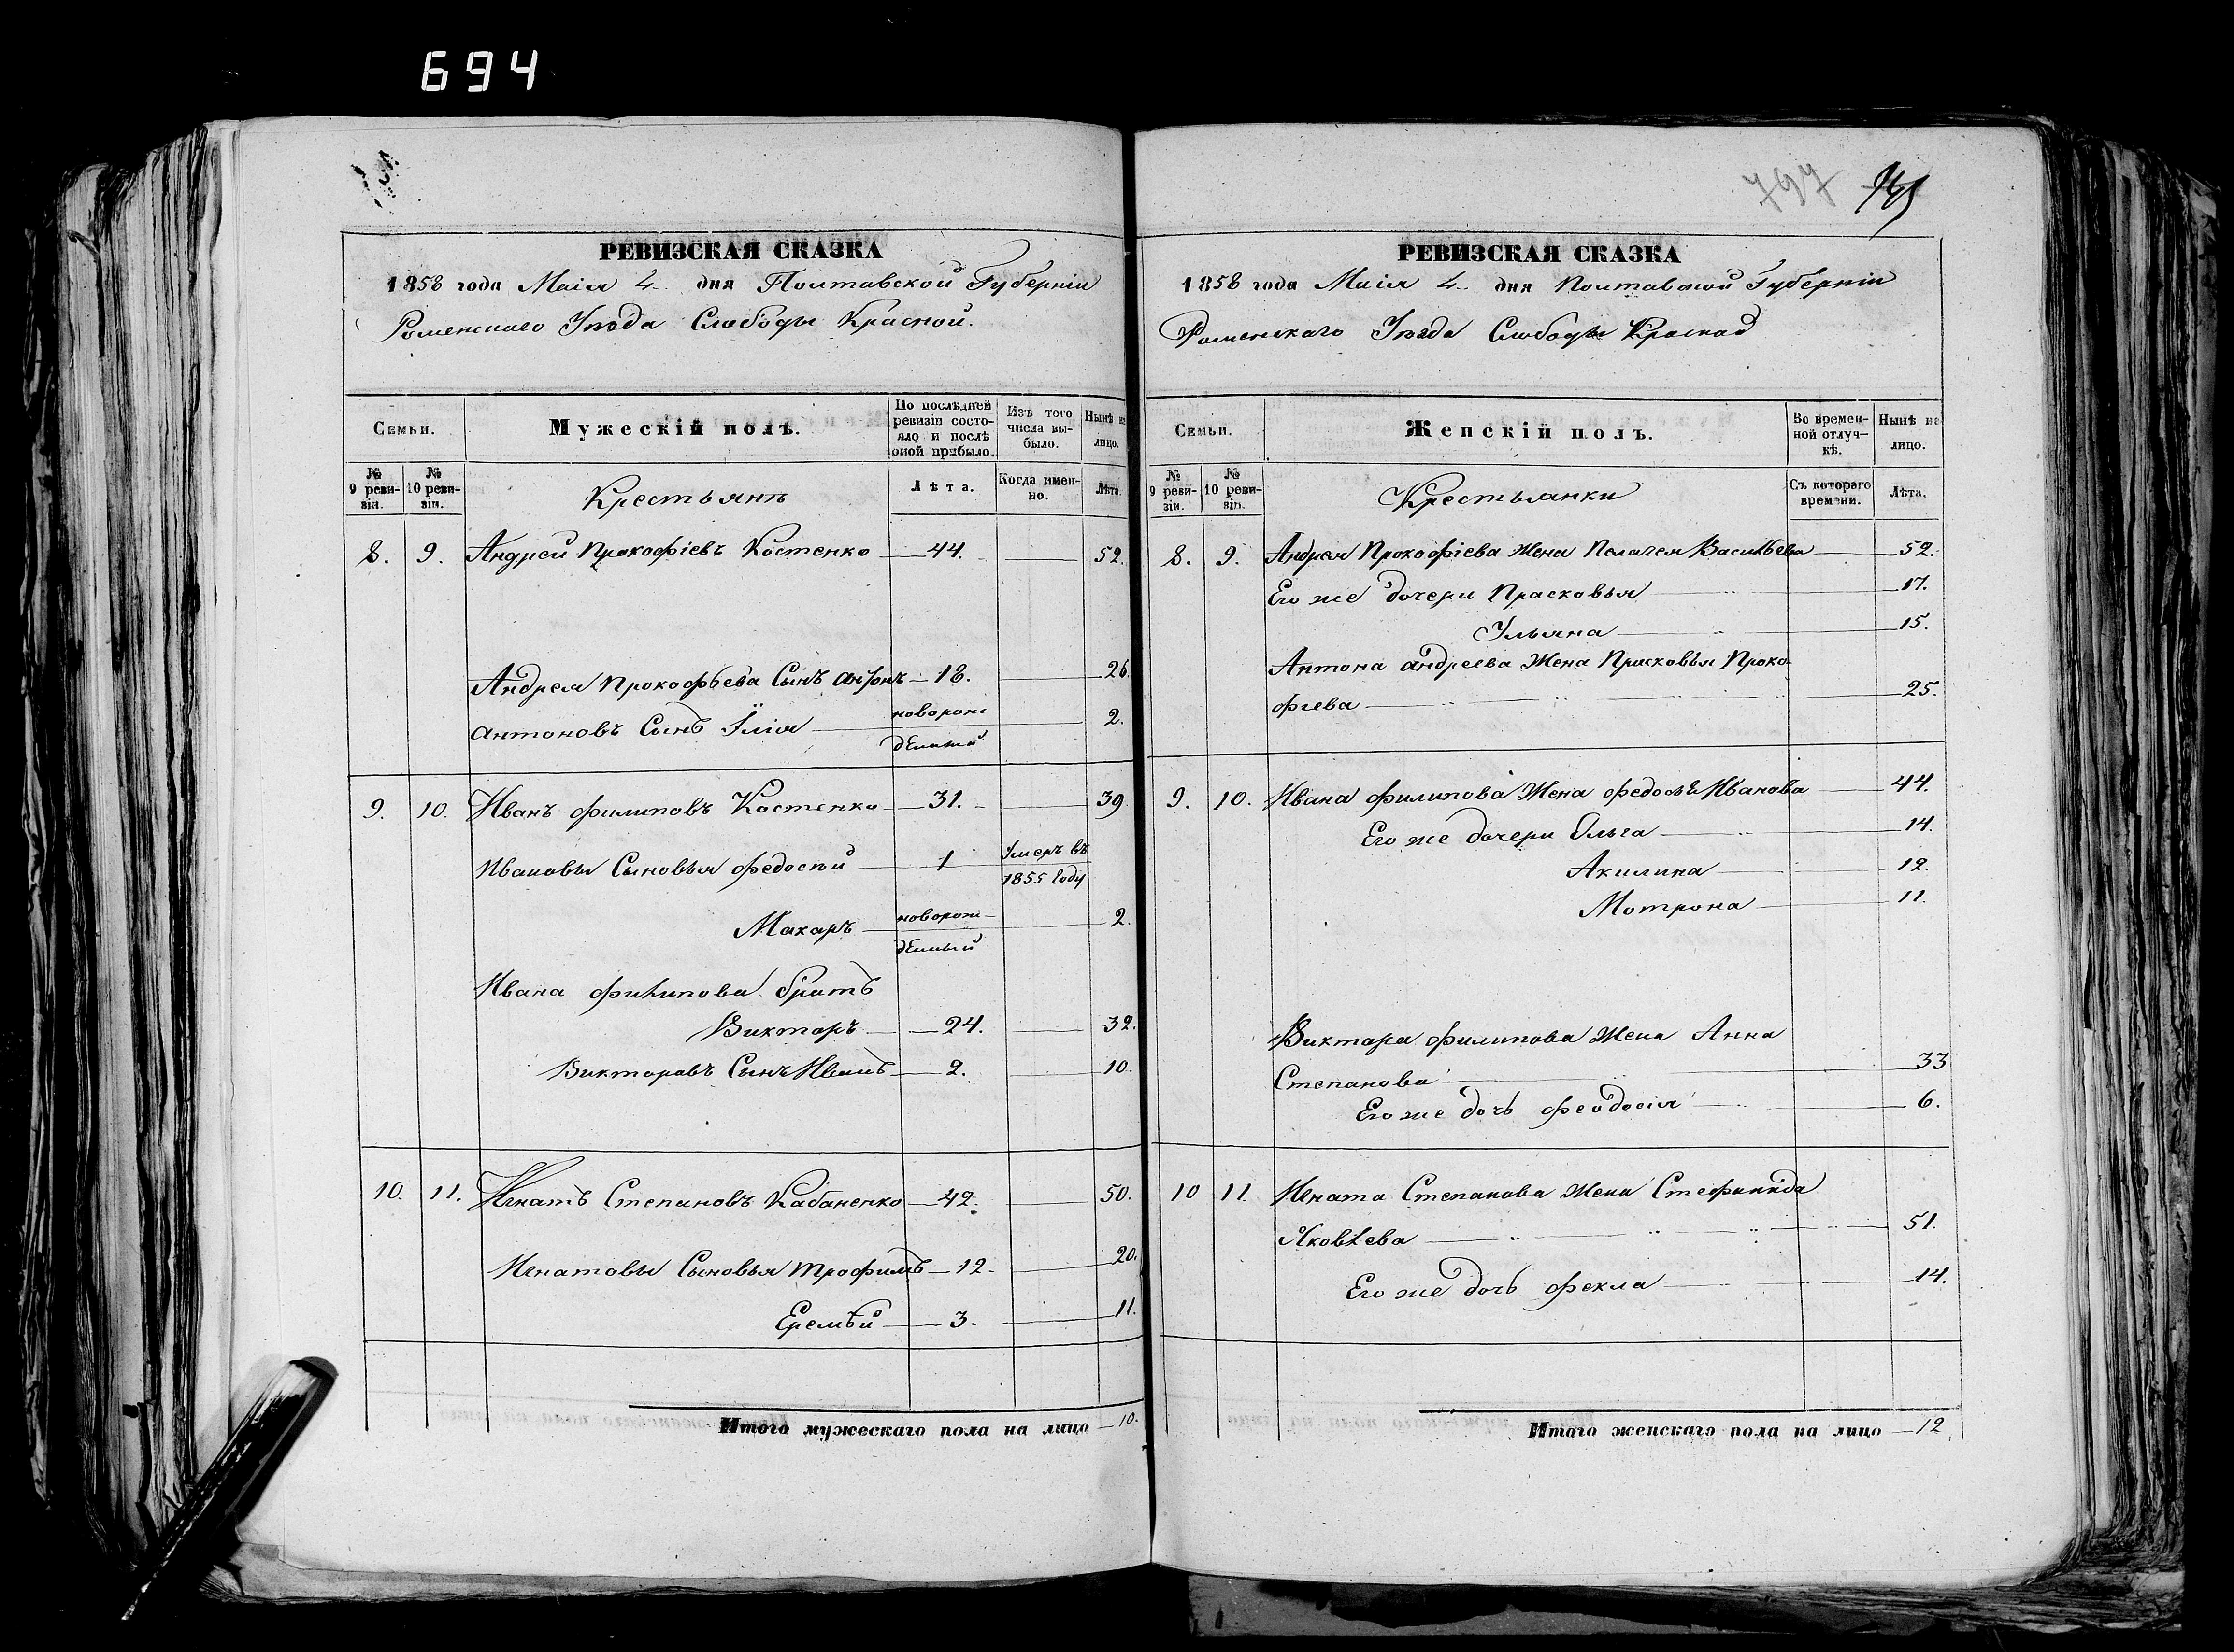 694
РЕВИЗСКАЯ СКАЗКА
1858 года Маія 4 дня Полтавской Губерніи
Роменскаго Уѣзда Слободы Красной.
Семьи.
Мужескій полъ.
По послѣдней ревизіи состояло и послѣ оной прибыло.
Изъ того числа выбыло.
Нынѣ на лицо.
№ 9 ревизіи.
№ 10 ревизіи.
Крестьянъ
Лѣта.
Когда именно.
Лѣта.
8. 9. Андрей Прокофіевъ Костенко 44. 52.
Андрея Прокофьева Сынъ Антонъ 18. 26.
Антоновъ Сынъ Илія новорож 2.
денный
9. 10. Иванъ Филиповъ Костенко 31. 39
Ивановы Сыновья Федосѣй 1 Умеръ въ
1855 году
Макаръ новорож- 2.
денный
Ивана Филипова братъ
Викторъ 24. 32.
Викторовъ Сынъ Иванъ 2. 10.
10. 11. Игнатъ Степановъ Кабаненко 42. 50.
Игнатовы Сыновья Трофимъ 12. 20.
Еремѣй 3. 11.
Итого мужескаго пола на лицо 10.
797
РЕВИЗСКАЯ СКАЗКА
1858 года Маія 4 дня Полтавской Губерніи
Роменскаго Уѣзда Слободы Красной
Семьи.
Женскій полъ.
Во временной отлучкѣ.
Нынѣ на лицо.
№ 9 ревизіи.
№ 10 ревизіи.
Крестьянки
Съ котораго времени.
Лѣта.
8. 9. Андрея Прокофіева Жена Пелагея Васильева 52.
Его же дочери Прасковья 17.
Ульяна 15.
Антона Андреева Жена Прасковья Проко-
фіева 25.
9. 10. Ивана Филипова Жена Федосья Иванова 44.
Его же дочери Ольга 14.
Акилина 12.
Мотрона 11.
Виктора Филипова Жена Анна
Степанова 33
Его же дочь Феодосія 6.
10 11. Игната Степанова Жена Стефанида
Яковлева 51.
Его же дочь Фекла 14.
Итого женскаго пола на лицо 12